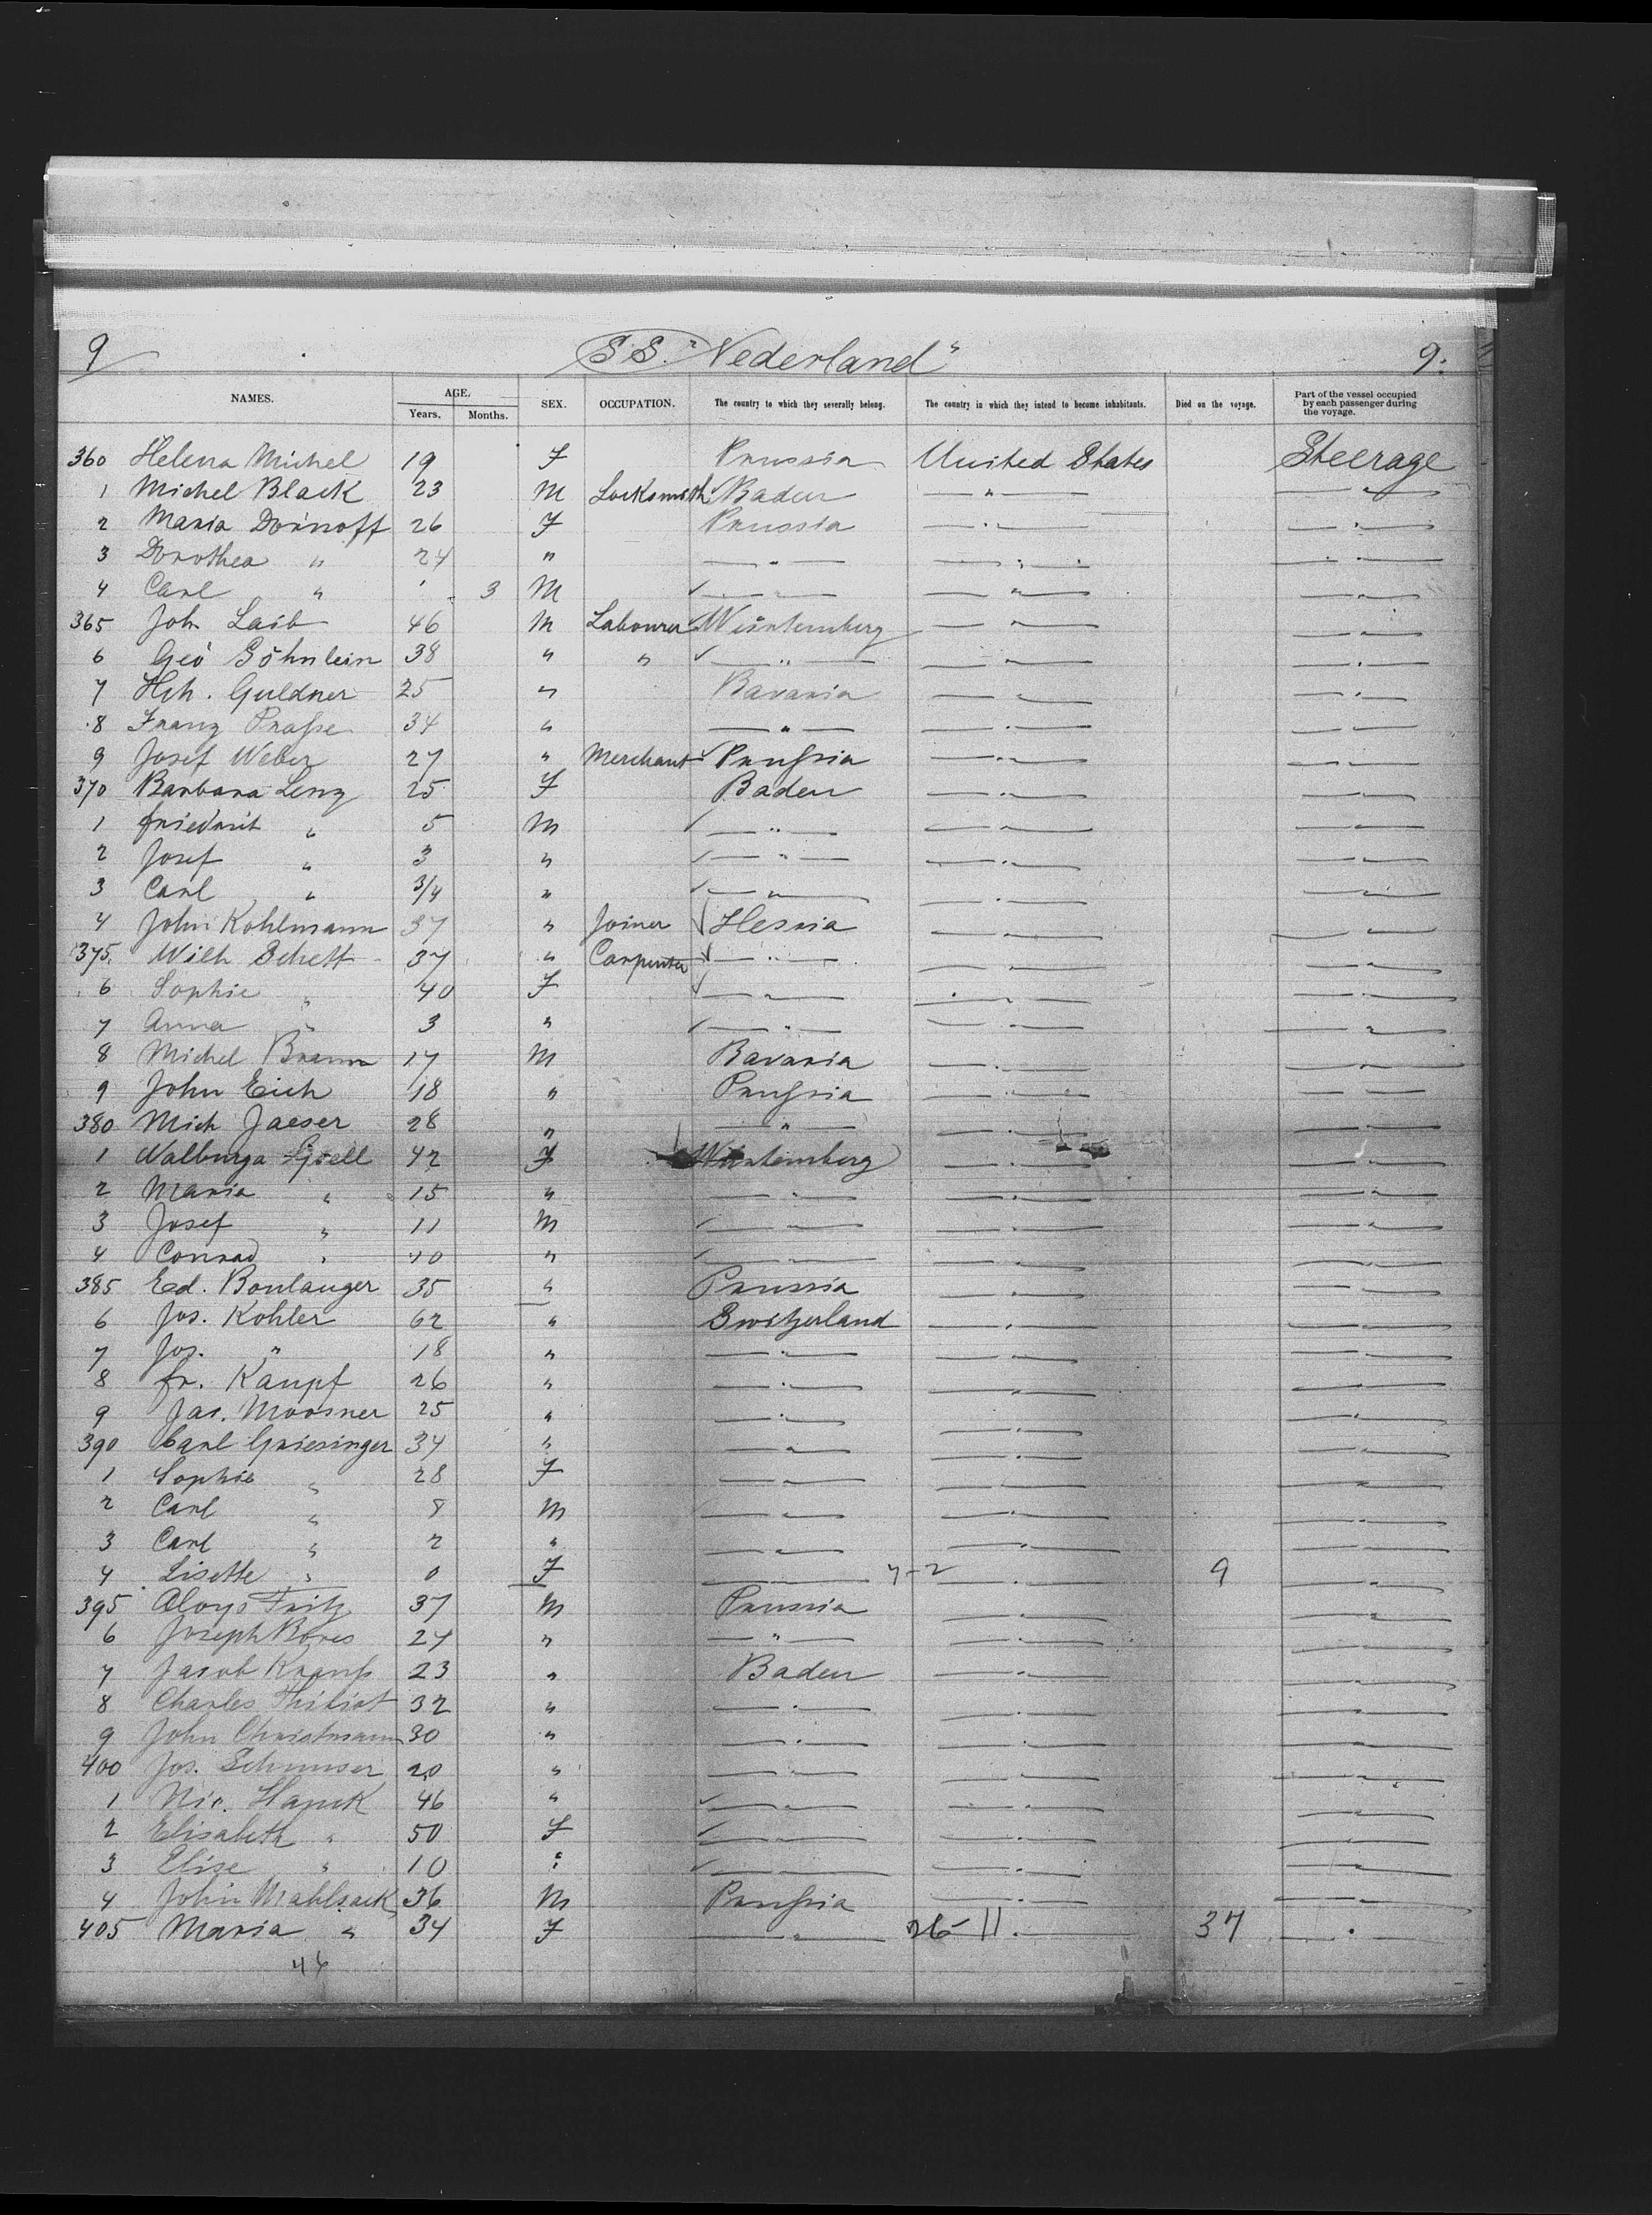 9 S.S. "Nederland" 9.
NAMES. AGE. Years. Months. SEX. OCCUPATION. The country to which they severally belong. The country in which they intend to become inhabitants. Died on the voyage. Part of the vessel occupied by each passenger during the voyage.
360 Helena Michel 19 F Prussia United States Steerage
1 Michel Black 23 M Locksmith Baden — " — — " —
2 Maria Dörnoff 26 F Prussia — " — — " —
3 Dorothea " 24 " — " — — " — — " —
4 Carl " 3 M — " — — " — — " —
365 Joh Laib 46 M Labourer Würtemberg — " — — " —
6 Geo Söhnlein 38 " " — " — — " — — " —
7 Hch. Guldner 25 " Bavaria — " — — " —
8 Franz Prasse 34 " — " — — " — — " —
9 Josef Weber 27 " Merchant Prussia — " — — " —
370 Barbara Lenz 25 F Baden — " — — " —
1 " 5 M — " — — " — — " —
2 Josef " 3 " — " — — " — — " —
3 Carl " 3/4 " — " — — " — — " —
4 John Kohlmann 37 " Joiner Hessia — " — — " —
375 Wilh Schett 37 " Carpenter — " — — " — — " —
6 Sophie " 40 F — " — — " — — " —
7 Anna " 3 " — " — — " — — " —
8 Michel Braun 17 M Bavaria — " — — " —
9 John Eich 18 " Prussia — " — — —
380 Mich Jaeser 28 " — " — — " — — " —
1 Walburga 42 F Würtemberg — " — — " —
2 Maria " 15 " — " — — " — — " —
3 Josef " 11 M — " — — " — — " —
4 Conrad " 10 " — " — — " — — " —
385 Ed. Boulanger 35 " Prussia — " — — " —
6 Jos. Kohler 62 " Switzerland — " — — " —
7 Jos. " 18 " — " — — " — — " —
8 fr. Kampf 26 " — " — — " — — " —
9 Jas. Moosner 25 " — " — — " — — " —
390 Carl Griesinger 34 " — " — — " — — " —
1 Sophie " 28 F — " — — " — — " —
2 Carl " 8 M — " — — " — — " —
3 Carl " 2 " — " — — " — — " —
4 Lisette " 0 F — — 4-2 — " — 9 — " —
395 Aloys Fritz 37 M Prussia — " — — " —
6 Joseph Bores 24 " — " — — " — — " —
7 Jacob Krauss 23 " Baden — " — — " —
8 Charles 32 " — " — — " — — " —
9 John Christmann 30 " — " — — " — — " —
400 Jos. 20 " — " — — " — — " —
1 Nic. Hauck 46 " — " — — " — — " —
2 Elisabeth " 50 F — " — — " — — " —
3 Elise " 10 " — " — — " — — " —
4 John Mahlsack 36 M Prussia — " — — " —
405 Maria " 34 F — " — 26-11. 37 — " —
46